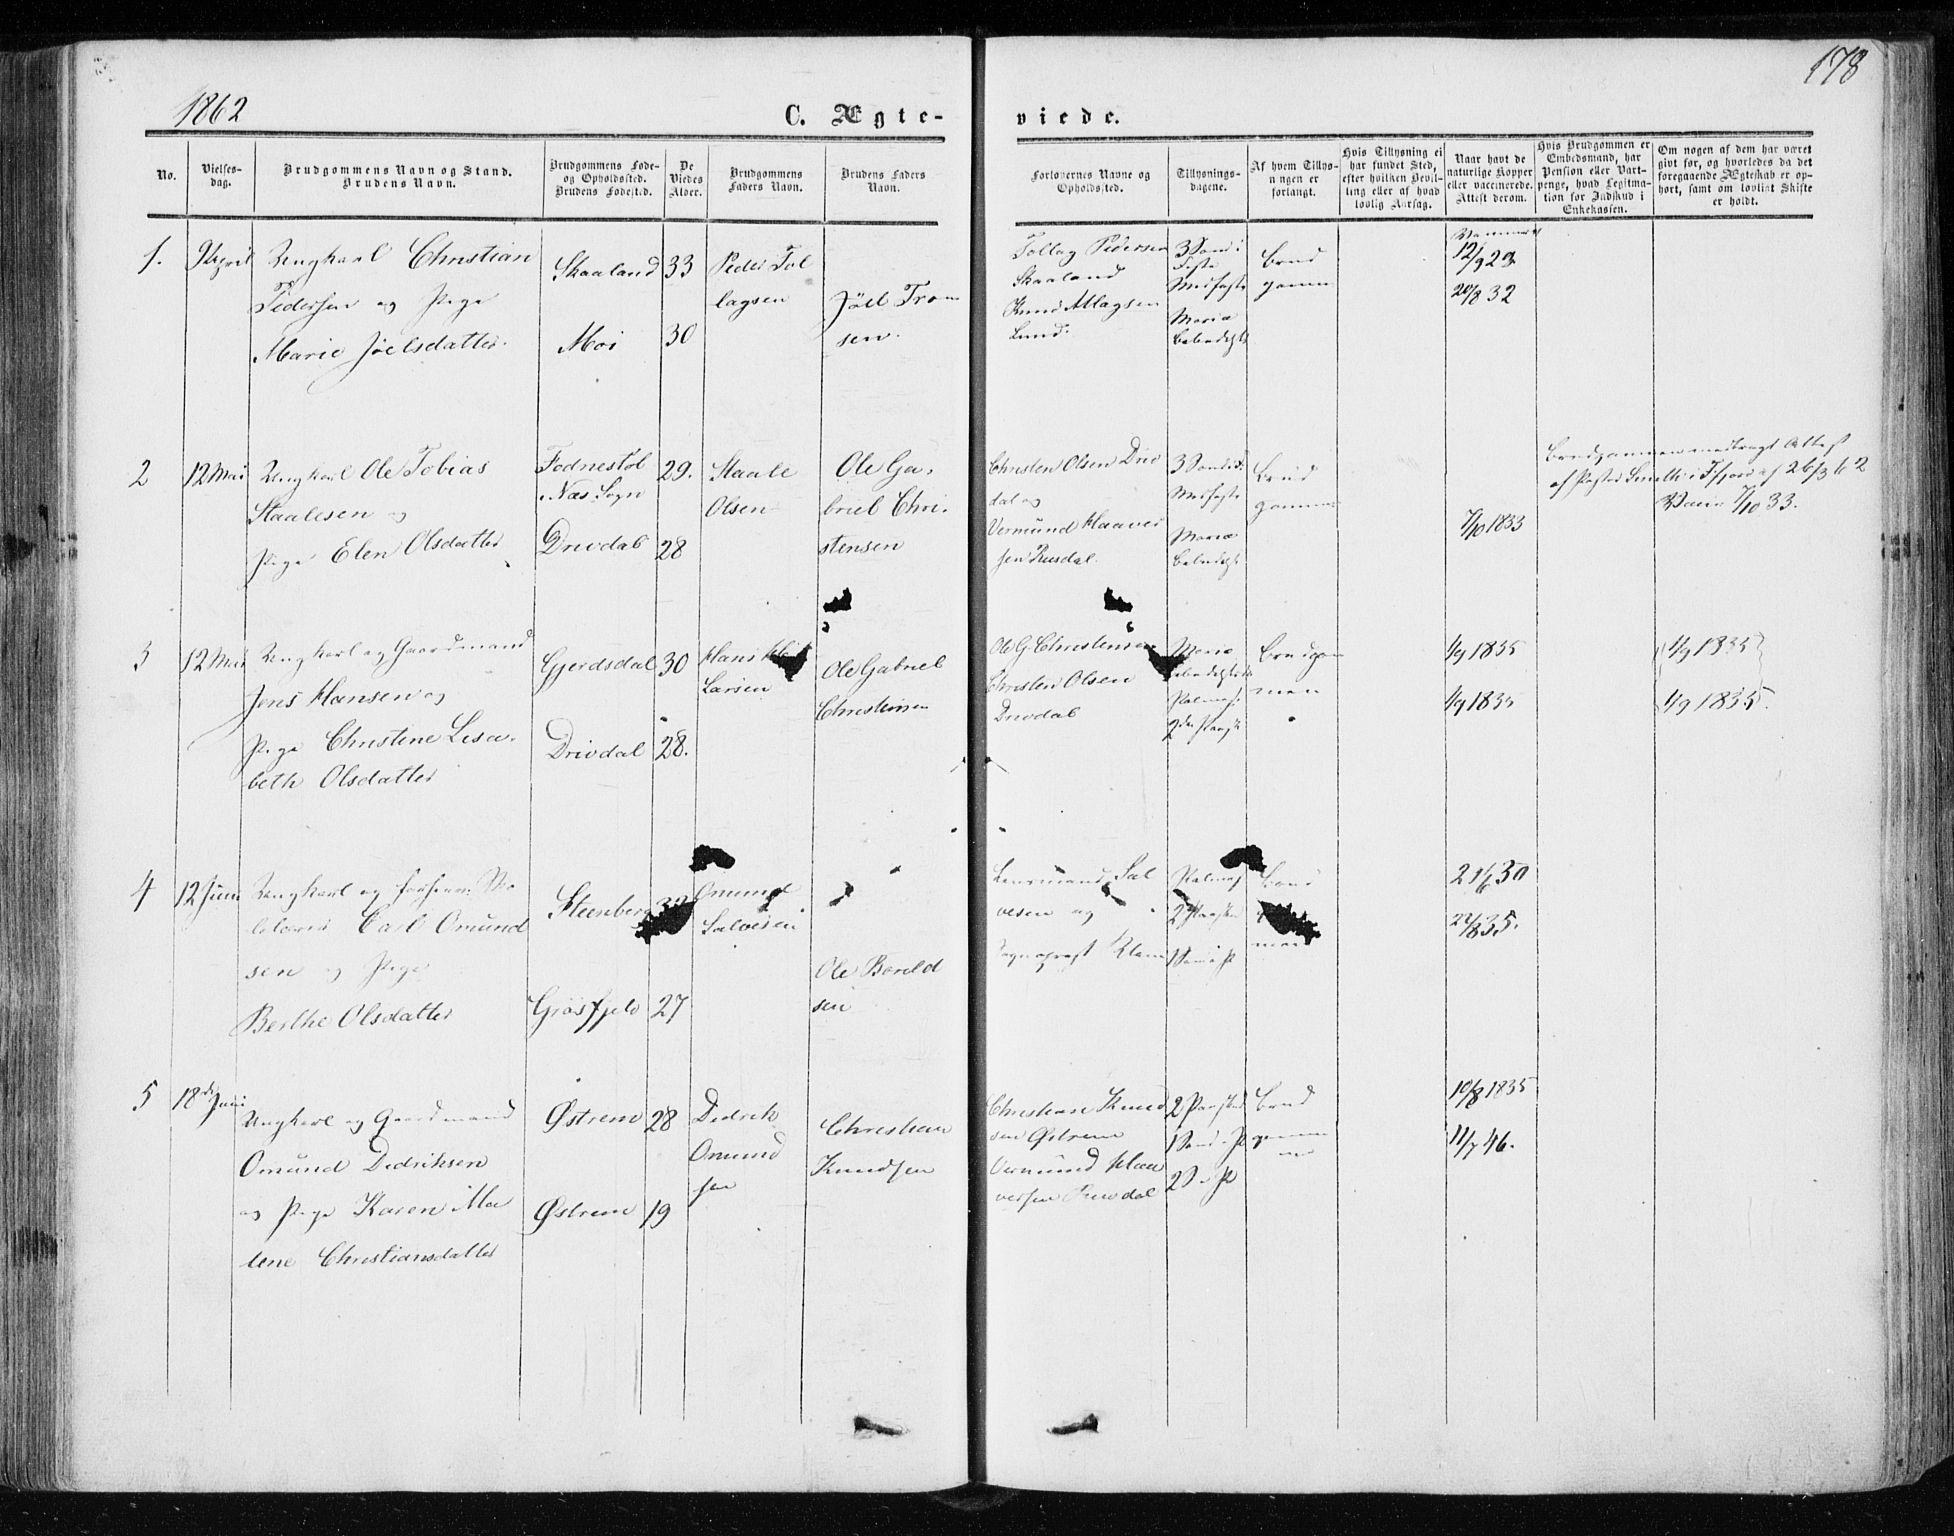 178
1862
C. Ægte-
viede.
No.
Vielses-
dag.
Brudgommens Navn og Stand.
Brudens Navn.
Brudgommens Føde-
og Opholdssted.
Brudens Fødested.
De
Viedes
Alder.
Brudgommens
Faders Navn.
Brudens Faders
Navn.
Forlovernes Navne og
Opholdssted.
Tillysnings-
dagene.
Af hvem Tillys-
ningen er
forlangt.
Hvis Tillysning ei
har fundet Sted,
efter hvilken Bevil-
ling eller af hvad
lovlig Aarsag.
Naar havt de
naturlige Kopper
eller vaccinerede.
Attest derom.
Hvis Brudgommen er
Embedsmand, har
Pension eller Vart-
penge, hvad Legitima-
tion for Indskud i
Enkekassen.
Om nogen af dem har været
givt før, og hvorledes da det
foregaaende Ægteskab er op-
hørt, samt om lovligt Skifte
er holdt.
1.
April
Ungkarl Christian
Pedersen og Pige
Marie Joelsdatter.
Skaaland
Moi
33
30
Peder Tol
lagsen
Joel Tron
sen.
Tollag Pedersen
Skaaland
Knud Atlagsen
Lund.
3 Sond i
Faste
Midfaste
Mariæ
Bebudelse
Brud
gommen
12/9 29
20/8 32
2
12 Mai
Ungkarl Ole Tobias
Staalesen og
Pige Elen Olsdatter
Fodnestøl
Næs Sogn
Drivdal
29.
28
Staale
Olsen
Ole Ga-
briel Chri-
stensen
Christen Olsen Driv
dal og
Vermund Haaver
sen Rusdal.
Midfaste
Mariæ
Bebudelse
Brud
gommen
7/10 1833
Brudgommen medbragt Attest
26/3 62
7/10 33.
3
12 Mai
Ungkarl og Gaardmand
Jens Hansen og
Pige Christine Lisa-
beth Olsdatter
Gjerdsdal
Drivdal
30
28.
Hans
Larsen
Ole Gabriel
Christensen
Ole G. Christensen
Christen Olsen
Drivdal
Mariæ
Palmes
2den Paaske
Brudgom
men
1/9 1835
1/9 1835
1/9 1835
1/9 1835.
4
12 Juni
Ungkarl og
Carl Omund
sen og Pige
Berthe Olsdatter
Steenberg
Grøsfjeld
27
Omund
Salvesen
Ole Bereld
sen
Lensmand Sal
vesen og
Palmes
2 Paaske
Brud
21/6 30
22/8 35.
5
18de Juni
Ungkarl og Gaardmand
Omund Didriksen
og Pige Karen Ma
lene Christiansdatter
Østrem
Østrem
28
19
Didrik
Omund
sen
Christian
Knudsen
Christian Knud
sen Østrem
Vermund Haa
versen Rusdal
2 Paaske
1 Sond. P
2 S. P
Brud
gommen
10/8 1835
11/7 46.